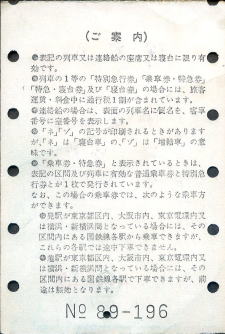 (ご案内)
●表記の列車又は連絡船の座席又は寝台に限り有
効です。
●列車の1等の「特別急行券」「乗車券・特急券」
「特急・寝台券」及び「寝台券」の場合には、旅客
運賃・料金中に通行税1割が含まれています。
●連絡船の場合は、表面の列車名に船名を、客車
番号に室番号を表示します。
●「ネ」「ゾ」の記号が印刷されるときがあります
が、「ネ」は「寝台車」の、「ゾ」は「増結車」の意
味です。
●「乗車券・特急券」と表示されているときは、
表記の区間及び列車に有効な普通乗車券と特別急
行券とが1枚で発行されています。
なお、この場合の乗車券では、次のような乗車方
ができます。
●発駅が東京都区内、大阪市内、東京電環内又
は横浜・新横浜間となっている場合には、その
区間内にある国鉄線各駅から乗車できますが、
これらの各駅では途中下車できません。
●着駅が東京都区内、大阪市内、東京電環内又
は横浜・新横浜間となっている場合には、その
区間内にある国鉄線各駅で下車できますが、前
途は無効となります。
№ 89-196